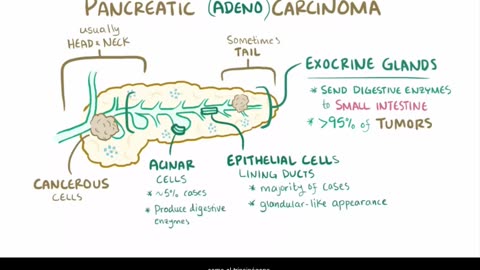 PANCREATIC (ADENO) CARCINOMA
usually
HEAD & NECK
Sometimes
TAIL
EXOCRINE GLANDS
* SEND DIGESTIVE ENZYMES
to SMALL INTESTINE
* >95% of TUMORS
CANCEROUS
CELLS
ACINAR
CELLS
* ~5% CASES
* PRODUCE DIGESTIVE
ENZYMES
EPITHELIAL CELLS
LINING DUCTS
* MAJORITY OF CASES
* glandular-like appearance
como el tripsinógeno